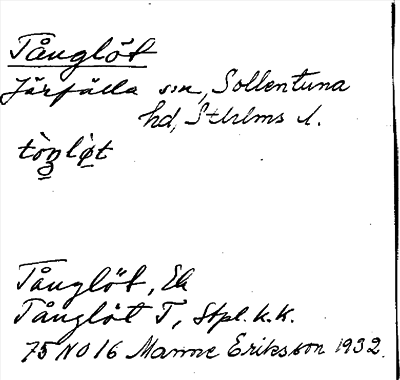 Tånglöt
Järfälla sn, Sollentuna
hd, Sthlms l.
tòŋlø̀t
Tånglöt, Ek
Tånglöt T, Stpl. k.k.
75 NO 16 Manne Eriksson 1932.